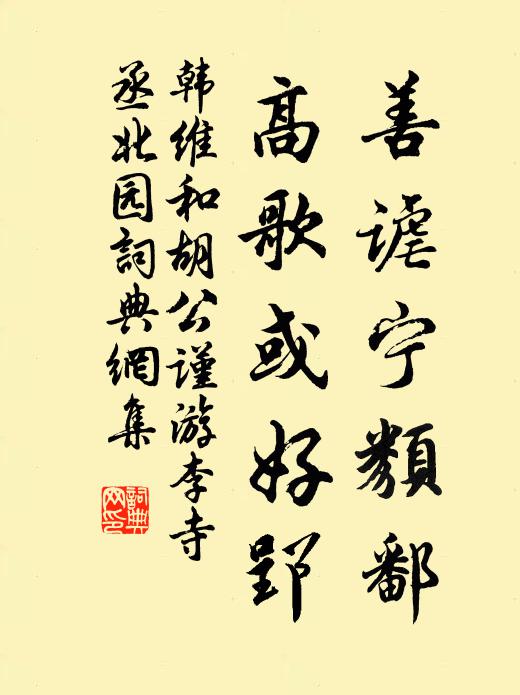 善谑宁類鄱
高歌或好郢
韩维和胡公谨游李寺
丞北园詞典網集
詞典網印